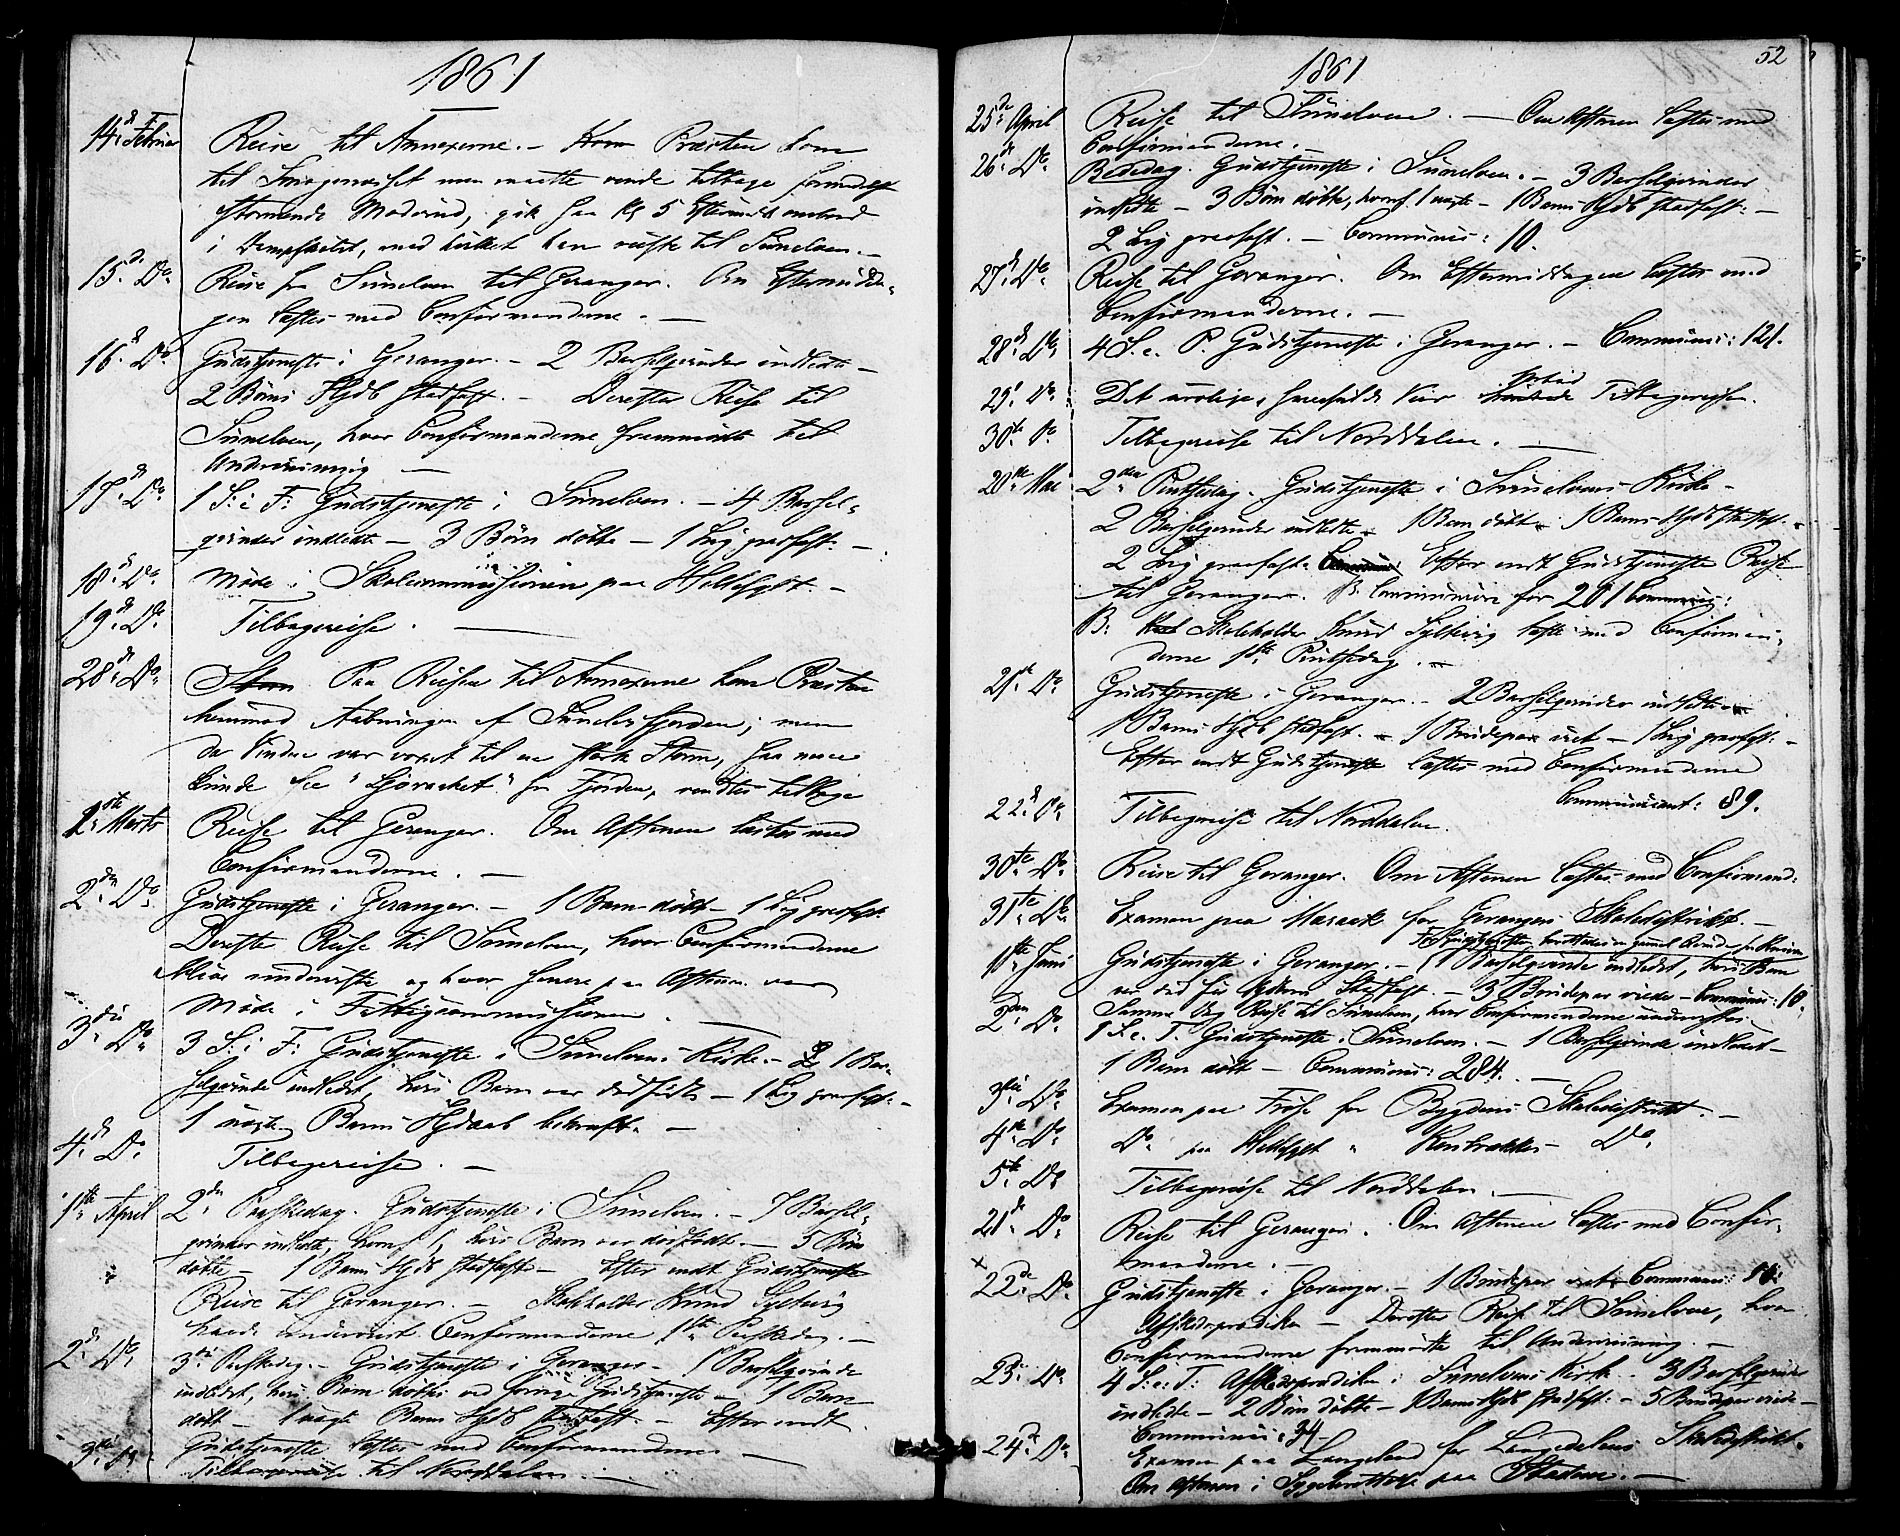 1861
14de Februar Reise til Annexerne. – Kom Præsten kom
til men maatte vende tilbage formedelst
stormende Modvind, gik saa Kl 5 Eftermidd ombord
i Dampskibet, med hvilket han reiste til Sunelven. –
15de Do Reise fra Sunelven til Geranger. Om Eftermidda-
gen læstes med Confirmanderne. –
16de Do Gudstjeneste i Geranger. – 2 Barselqvinder indledte –
2 Børns Hjdb stadfæst. – Derefter Reise til
Sunelven, hvor Confirmanderne fremmødte til
Underviisning –
17de Do 1 S: i F: Gudstjeneste i Sunelven. – 4 Barsel-
qvinder indledte – 3 Børn døbte – 1 Lig præfast. –
18de Do Møde i Skolecommissionen paa Hellesylt. –
19de Do Tilbagereise. –
28de Do Storm Paa Reisen til Annexerne kom Præsten
henimod Aabningen af Sunelvsfjorden; men
da Vinden var voxet til en stærk Storm, saa man
kunde see "Sjørocket" paa Fjorden, vendtes tilbage
1ste Marts Reise til Geranger. Om Aftenen læstes med
Confirmanderne. –
2den Do Gudstjeneste i Geranger. – 1 Barn døbt – 1 Lig præfast
Derefter Reise til Sunelven, hvor Confirmanderne
bleve underviste og hvor senere paa Aftenen var
Møde i Fattigcommissionen –
3die Do 3 S: i F: Gudstjeneste i Sunelvens Kirke. – 2 1 Bar-
selqvinde indledt, hvis Barn var dødfødt – 1 Lig præfast: –
1 uægte Barns Hjdaab bekræft. –
4de Do Tilbagereise. –
1ste April 2den Paaskedag. Gudstjeneste i Sunelven. – 7 Barsel-
qvinder indledte, hvoraf 1, hvis Barn var dødfødt. – 5 Børn
døbte – 1 Barns Hjdb stadfæst – Efter endt Gudstjeneste
Reise til Geranger. – Skoleholder Knud Sylteviig
havde undervist Confirmanderne 1ste Paaskedag. –
2de Do 3die Paaskedag. – Gudstjeneste i Geranger – 1 Barselqvinde
indledt, hvis Barn døbtes ved forrige Gudstjeneste – 1 Barn
døbt – 1 uægte Barns Hjdb stadfæst – Efter endt
Gudstjeneste læstes med Confirmanderne –
3die Do Tilbagereise til Norddalen. –
52
1861
25de April Reise til Sunelven. – Om Aftenen læstes med
Confirmanderne. –
26de Do Bededag. Gudstjeneste i Sunelven. – 3 Barselqvinder
indledte – 3 Børn døbte, hvoraf 1 uægte – 1 Barns Hjdb stadfæst: –
2 Lig præfast. – Communic: 10.
27de Do Reise til Geranger. Om Eftermiddagen læstes med
Confirmanderne. –
28de Do 4 S. e. P. Gudstjeneste i Geranger. – Communic: 121.
29de Do Det urolige, sneefulde Veir forbød hindrede Tilbagereisen.
30te Do Tilbagereise til Norddalen. –
20de Mai 2den Pintsedag. Gudstjeneste i Sunelvens Kirke –
2 Barselqvinder indledte – 1 Barn døbt – 1 Barns Hjdb stadfæst. –
2 Lig præfast. Communic Efter endt Gudstjeneste Reise
til Geranger. Communicere for 201 Communic:
B: Skoleholder Knud Sylteviig læste med Confirman-
derne 1ste Pintsedag. –
21de Do Gudstjeneste i Geranger. – 2 Barselqvinder indledte –
1 Barns Hjdb stadfæst. – 1 Brudepar viet – 1 Lig præfast: –
Efter endt Gudstjeneste læstes med Confirmanderne
Communicant: 89.
22de Do Tilbagereise til Norddalen.
30te Do Reise til Geranger. Om Aftenen læstes med Confirmand:
31te Do Examen paa Maraak for Gerangers Skoledistrikt. –
1ste Juni Gudstjeneste i Geranger. – 1 Barselqvinde indledet, hvis Barn
var død før Hjdbens Stadfæst. – 3 Brudepar viede – Communic: 10.
Samme Dag Reise til Sunelven, hvor Confirmanderne undervistes.
2den Do 1 S. e. T. Gudstjeneste i Sunelven. – 1 Barselqvinde indledet –
1 Barn døbt – Communic: 284. –
3die Do Examen paa Frøse for Bygdens Skoledistrikt. –
4de Do Do paa Hellesylt " Do
5te Do Tilbagereise til Norddalen. –
21de Do Reise til Geranger. Om Aftenen læstes med Confir-
manderne. –
x 22de Do Gudstjeneste i Geranger – 1 Brudepar viet – Communic:
Afskedsprædiken – Derefter Reise til Sunelven, hvor
Confirmanderne fremmødte til Underviisning. –
23de Do 4 S: e: T: Afskedsprædiken i Sunelvens Kirke. 3 Barselqvinder
indledte – 2 Børn døbte – 1 Barns Hjdb stadfæst: – 5 Brudepar viede –
Communic: 34 –
24de Do Examen paa Langeland for Langedalens Skoledistrikt.
Om Aftenen i Sygeberettelse paa